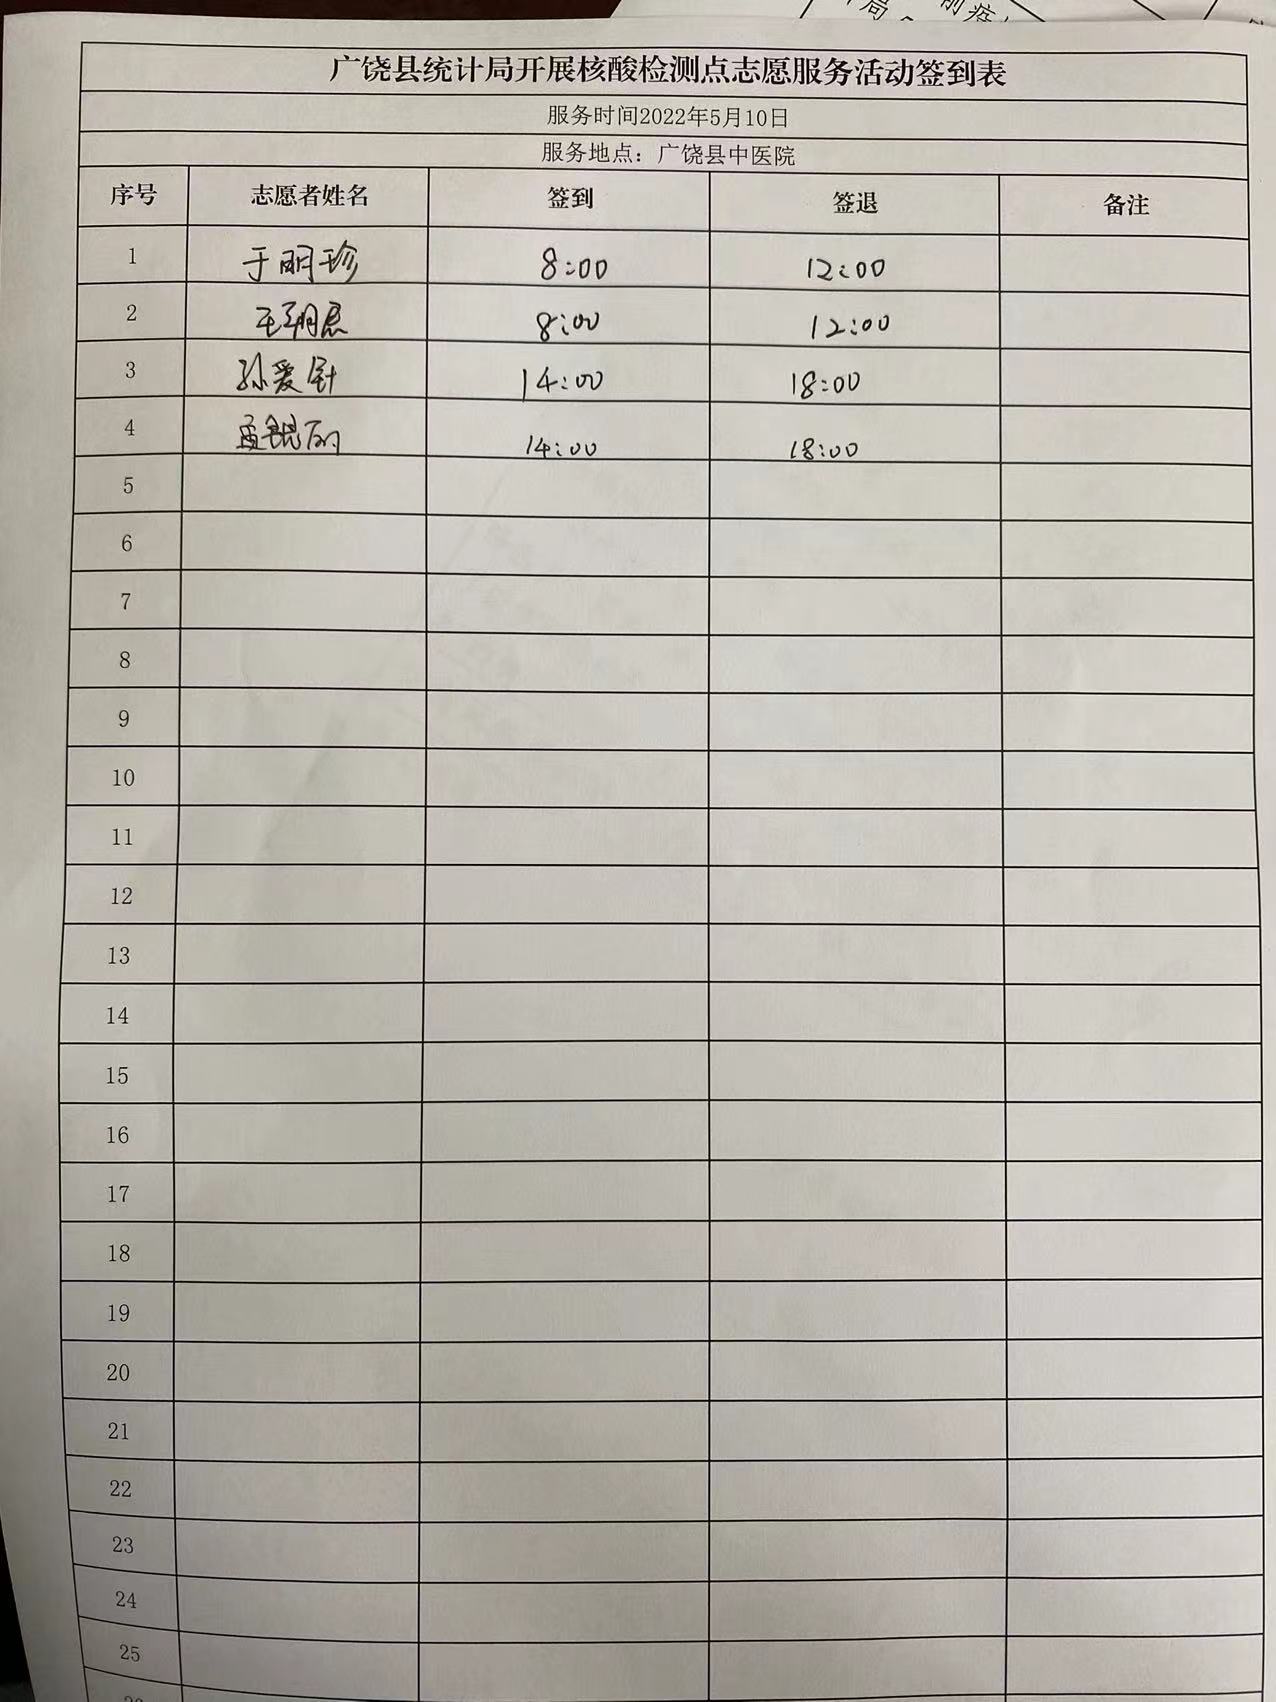 广饶县统计局开展核酸检测点志愿服务活动签到表
服务时间2022年5月10日
服务地点：广饶县中医院
序号 志愿者姓名 签到 签退 备注
1 于明珍 8:00 12:00
2 8:00 12:00
3 孙爱 14:00 18:00
4 14:00 18:00
5
6
7
8
9
10
11
12
13
14
15
16
17
18
19
20
21
22
23
24
25